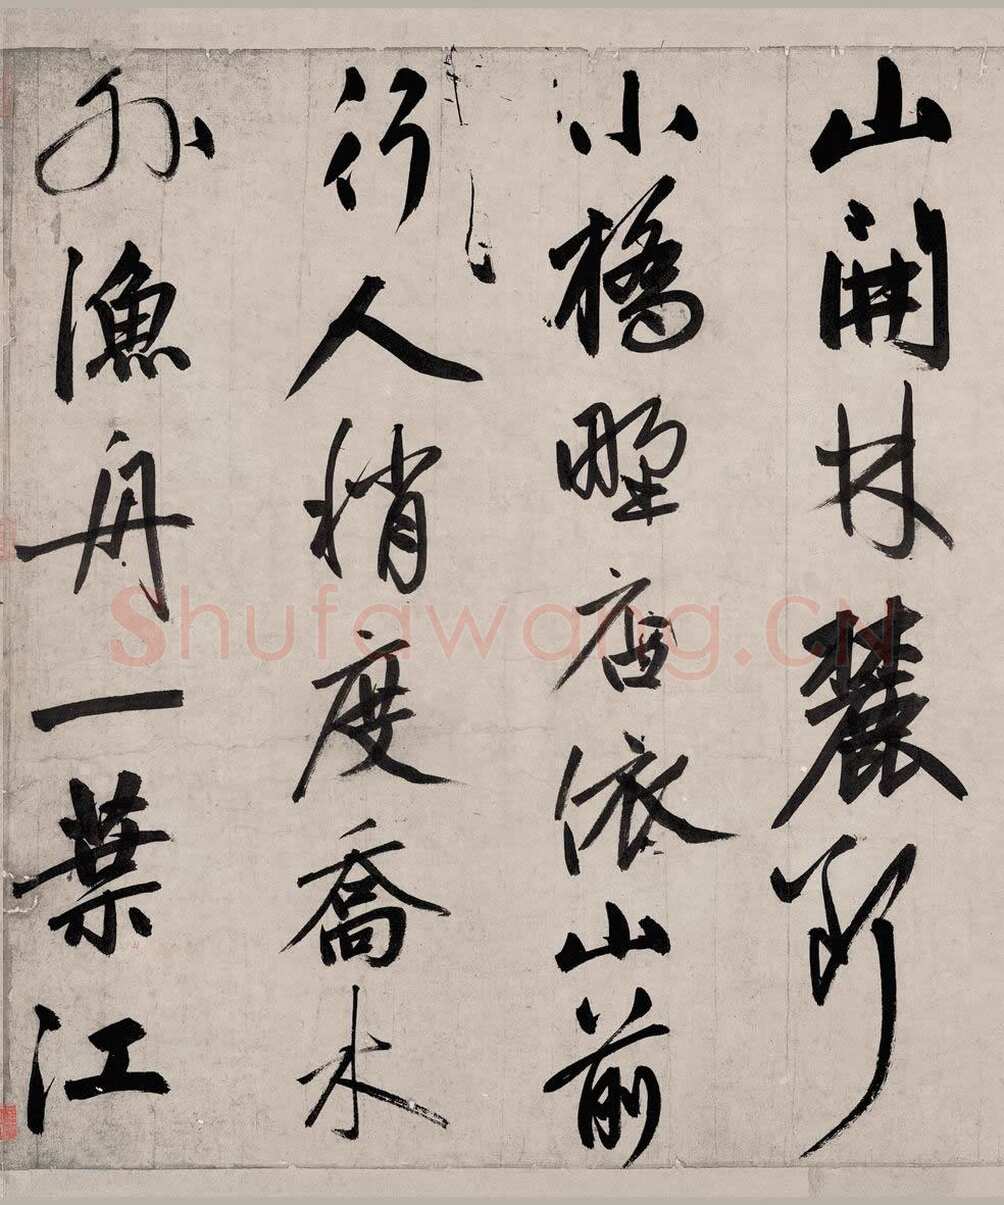 山開林麓斷
小橋野店依山前
行人稍度喬木
外漁舟一葉江
Shufawang.CN